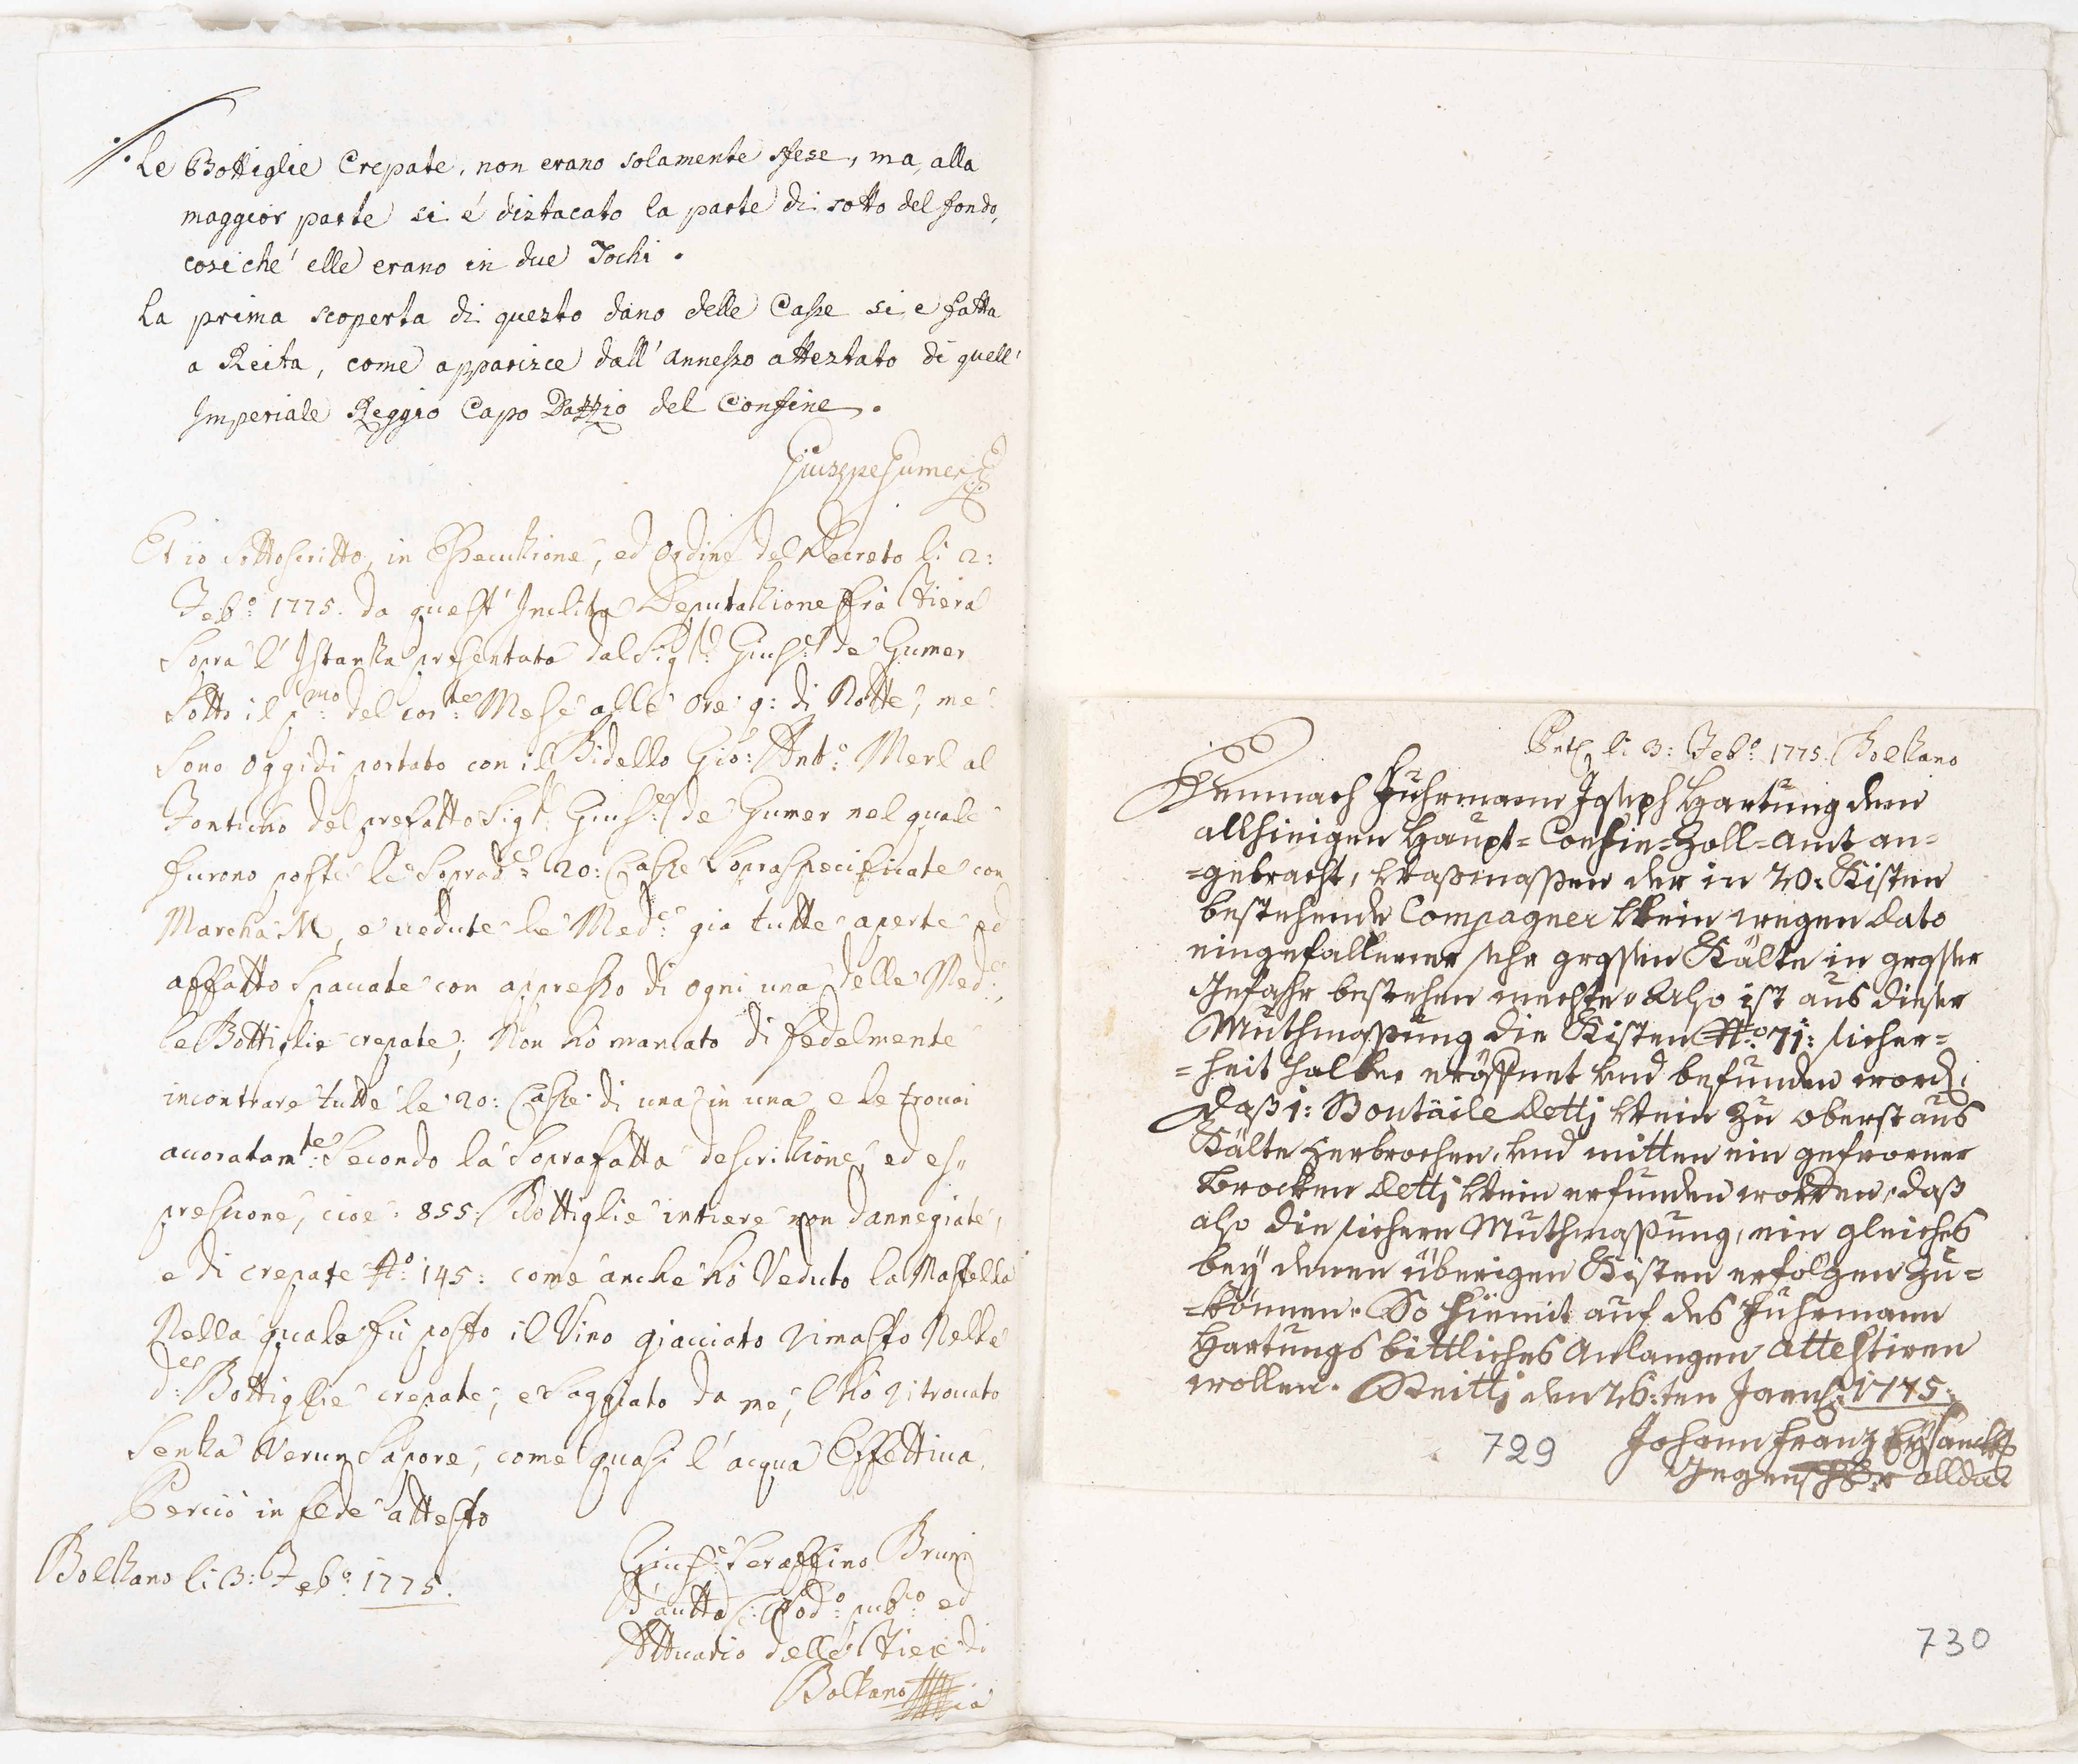 Le Bottiglie Crepate, non erano solamente sfese, ma, alla
maggior parte si é distacato la parte di sotto del fondo,
cosi che' elle erano in due Tochi.
La prima scoperta di questo dano delle Casse si e fatta
a Reita, come apparisce dall' annesso attestato di quell'
Imperiale Reggio Capo Dazzio del Confine.
Giuseppe Gumer
Et io sottoscritto, in Essecuzione, ed Ordine del Decreto li 2:
Febº: 1775. da quest' Inclita Deputazione frà Fiera
Sopra l' Istanza presentata dal Sigr: Giuse: de Gumer
Sotto il pmo: del corte: Mese alle ore 9: di Notte, me
Sono oggidi portato con il Bidello Gio: Antº: Merl al
Fonticho del prefatto Sigr: Giuse: de Gumer nel quale
furono poste le soprade: 20: Casse soprasspecificate con
Marcha M, e vedute le Mede: gia tutte aperte ed
affatto spacate con appresso di ogni una delle Mede:,
le Bottiglie crepate; Non hò mancato di fedelmente
incontrare tutte le 20: Casse di una in una e le trovai
accuratamte: Secondo la soprafatta descrizione, ed es„
pressione, cioe: 855: Bottiglie intiere non dannegiate,
e di crepate Nº: 145: come anche hò Veduto la Mastella
Nella quale fù posto il Vino giacciato rimasto Nelle
der: Bottiglie crepate, e saggiato da me, l'hò ritrovato
Senza Verun Sapore, come quasi l' acqua Effettiva.
Perciò in fede attesto
Bolzano li 3: Febº: 1775.
Giuse: Seraffino Bruni
d'autta: Nodº: pubco: ed
Attuario delle Fiere di
Bolzano
li 3: Febº: 1775. Bolzano
Demnach Fuhrmann Joseph Hartung dem
allhiesigen Haupt=Confin=Zoll=amt an=
=gebracht, wasmassen der in 20: Kisten
bestehende Compagner Wein wegen dato
eingefallener sehr grossen Kälte in grosser
Gefahr bestehen mechte. Also ist aus dieser
Muthmassung die Kisten Nº: 71: sicher=
=heit halber eröffnet und befunden word:
daß 1: Boutäile detti Wein zu oberst aus
Kälte zerbrochen, und mitten ein gefrorner
Brocken detti Wein erfunden worden, daß
also die sichere Muthmassung, ein gleiches
bey denen überigen Kisten erfolgen zu=
=können. So hiemit auf des Fuhrmann
Hartungs bittliches Anlangen attestiren
wollen. Reitti den 26:ten Jenner 1775.
Johann Franz
Gegenschreiber alldal
729
730